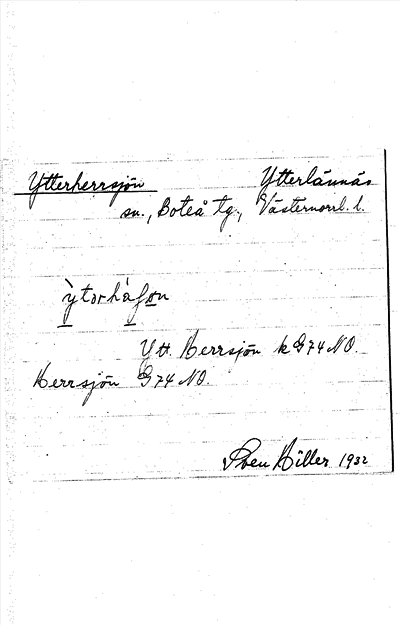 Ytterherrsjön Ytterlännäs
sn., Boteå tg., Västernorrl. l.
Ytt. Herrsjön k G74 NO.
Herrsjön G74 NO.
Sven Hiller 1932